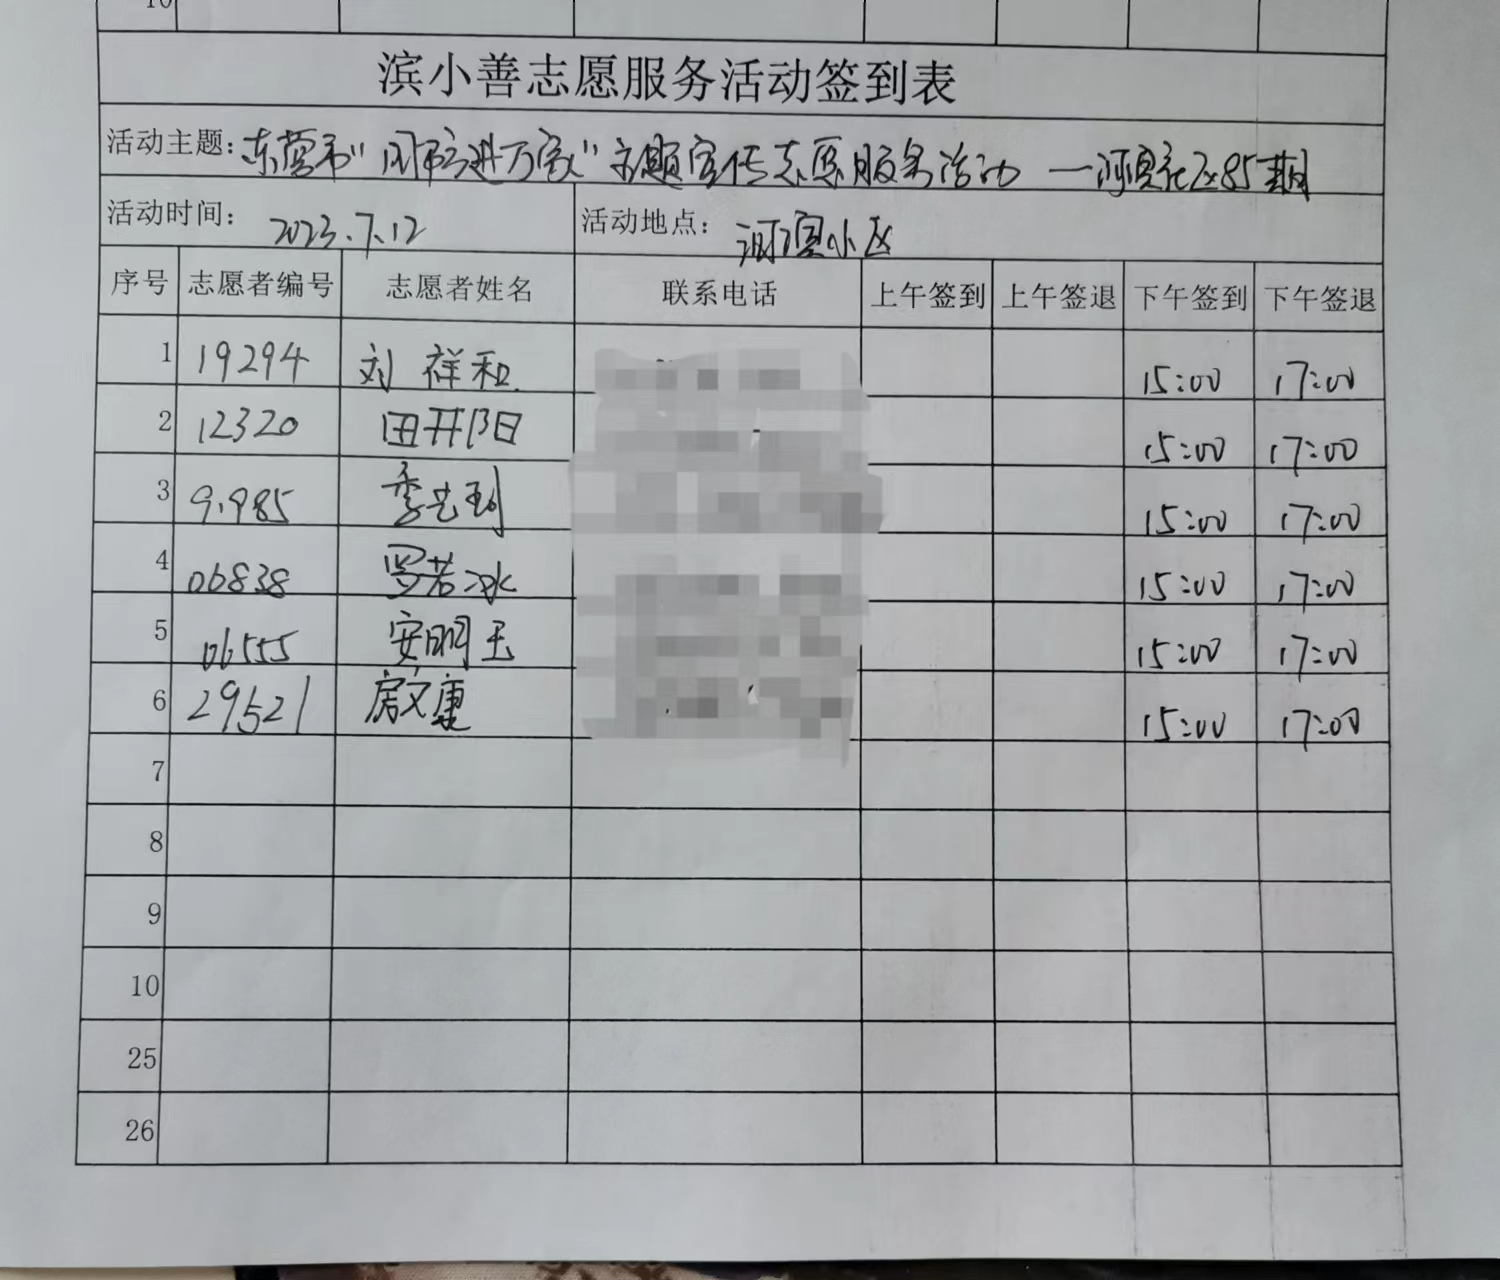 10
滨小善志愿服务活动签到表
活动主题：东营市"闭环进万家"主题宣传志愿服务活动 一河滨社区85期
活动时间： 2023.7.12 活动地点： 河滨小区
序号 志愿者编号 志愿者姓名 联系电话 上午签到 上午签退 下午签到 下午签退
1 19294 刘祥和 15:00 17:00
2 12320 田开阳 15:00 17:00
3 9.985 15:00 17:00
4 06838 罗若冰 15:00 17:00
5 06555 安明玉 15:00 17:00
6 29521 房文康 15:00 17:00
7
8
9
10
25
26